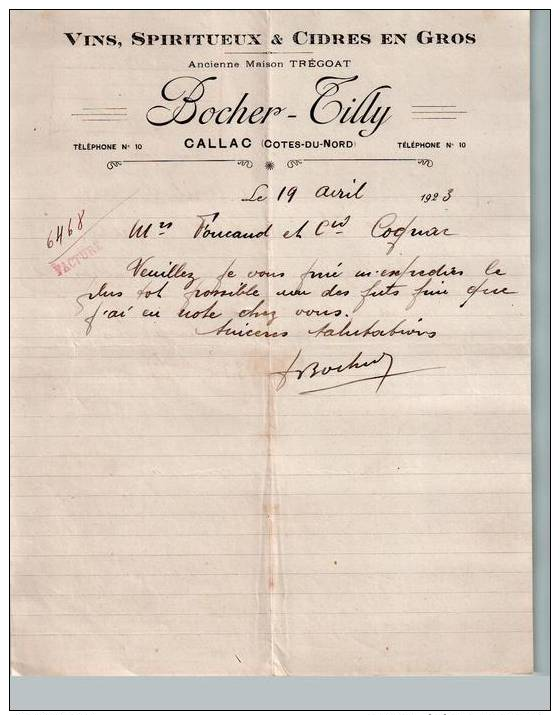 VINS, SPIRITUEUX & CIDRES EN GROS
Ancienne Maison TRÉGOAT
Bocher-Tilly
TÉLÉPHONE N° 10 CALLAC (COTES-DU-NORD) TÉLÉPHONE N° 10
Le 19 avril 1923
6468
FACTURE
Mrs Foucaud et Cie Cognac
Veuillez je vous prie m'expedier le
plus tot possible un des futs fine que
j'ai en note chez vous.
Sinceres salutations
Bocher